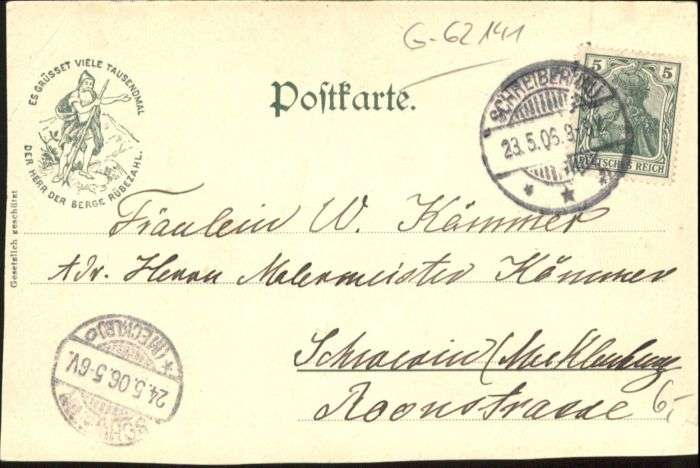 G-62141
ES GRÜSSET VIELE TAUSENDMAL
DER HERR DER BERGE RÜBEZAHL.
Gesetzlich geschützt
Postkarte.
SCHREIBERHAU
23.5.06.
5 5
DEUTSCHES REICH
Fräulein W. Kämmer
Adr. Herrn Malermeister Kämmer
Schwerin (Mecklenburg
Roonstrasse 6,-
(MECKLB)
24.5.06.5-6V.